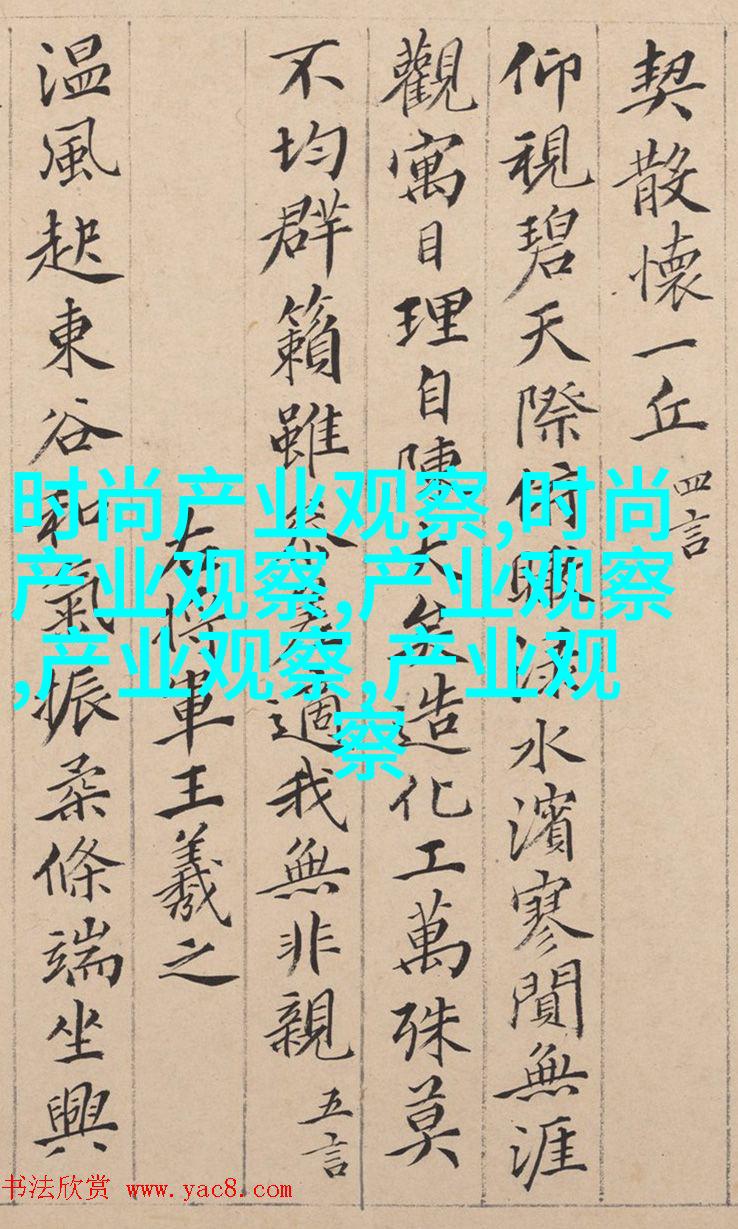 契散懷一丘 四言
仰視碧天際俯瞰淥水濱寥閴無涯
觀寓目理自陳大矣造化工萬殊莫
不均群籟雖参差適我無非親 五言
右将軍王羲之
温風起東谷和氣振柔條端坐興
时尚产业观察,时尚
产业观察,产业观察
,产业观察,产业观
察
书法欣赏 www.yac8.com